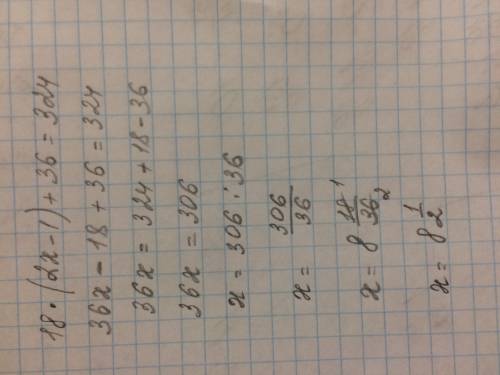 18 · (2x - 1) + 36 = 324
36x - 18 + 36 = 324
36x = 324 + 18 - 36
36x = 306
x = 306 : 36
x = 306/36
x = 8 18/36 1/2
x = 8 1/2